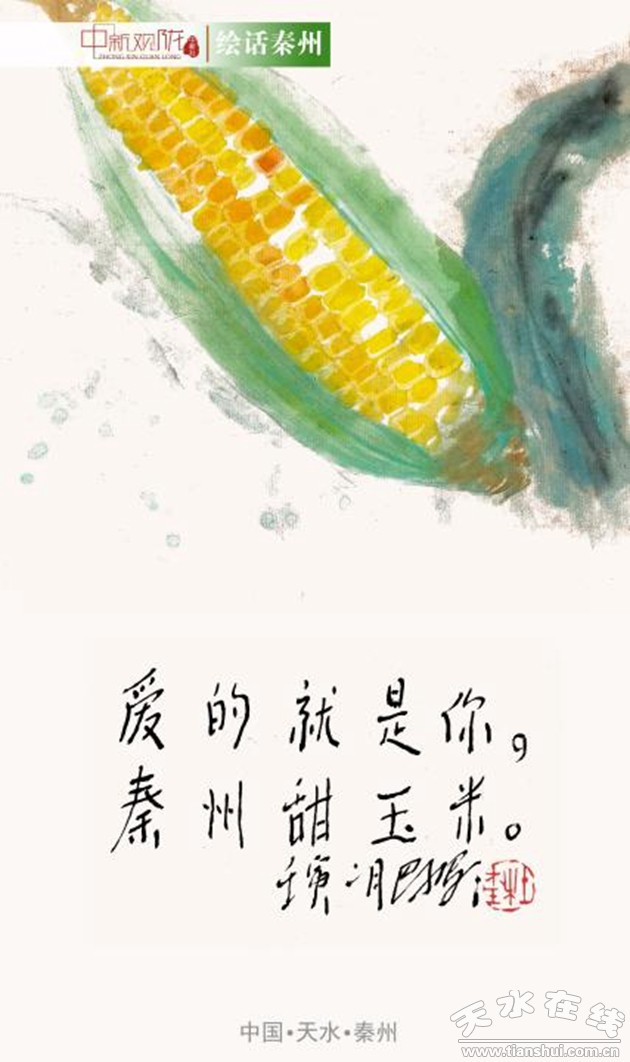 中新观陇
ZHONG XIN GUAN LONG
绘话秦州
爱的就是你，
秦州甜玉米。
中国·天水·秦州
天水在线
www.tianshui.com.cn